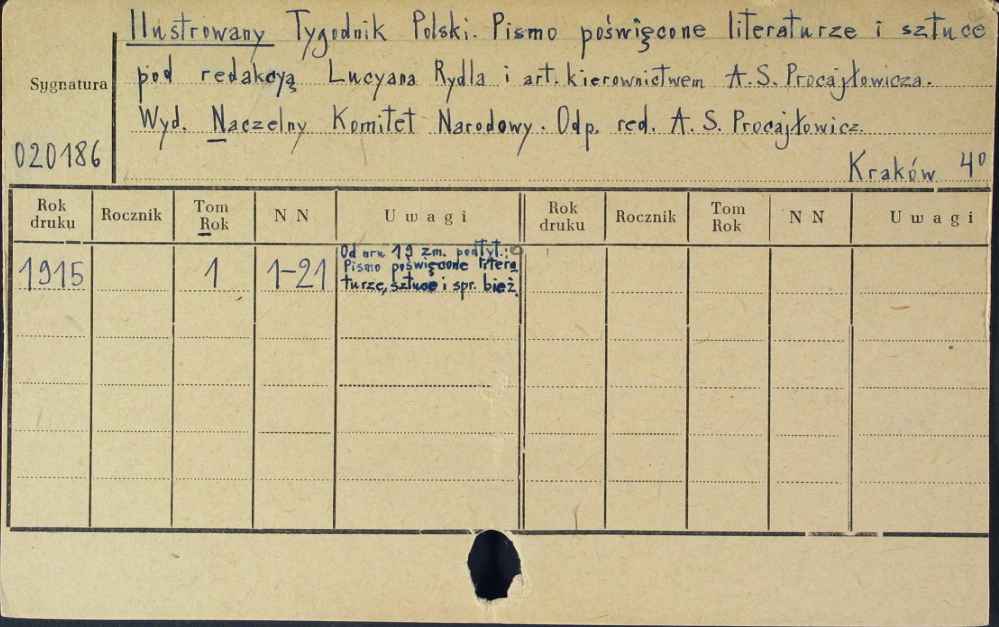 Ilustrowany Tygodnik Polski. Pismo poświęcone literaturze i sztuce
pod redakcyą Lucyana Rydla i art. kierownictwem A. S. Procajłowicza.
Wyd. Naczelny Komitet Narodowy. Odp. red. A. S. Procajłowicz.
Kraków 4°
Sygnatura
020186
Rok druku Rocznik Tom Rok NN Uwagi Rok druku Rocznik Tom Rok NN Uwagi
1915 1 1-21
Od nru 19 zm. podtyt.:
Pismo poświęcone litera
turze, sztuce i spr. bież.